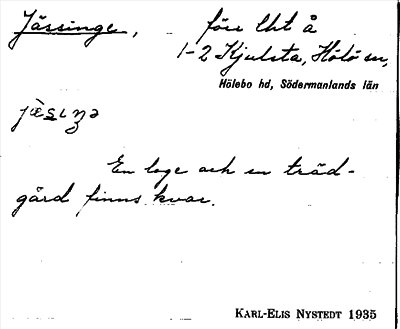 Jässinge, före lht å
1-2 Kjulsta, Hölö sn,
Hölebo hd, Södermanlands län
En loge och en träd-
gård finns kvar.
KARL-ELIS NYSTEDT 1935